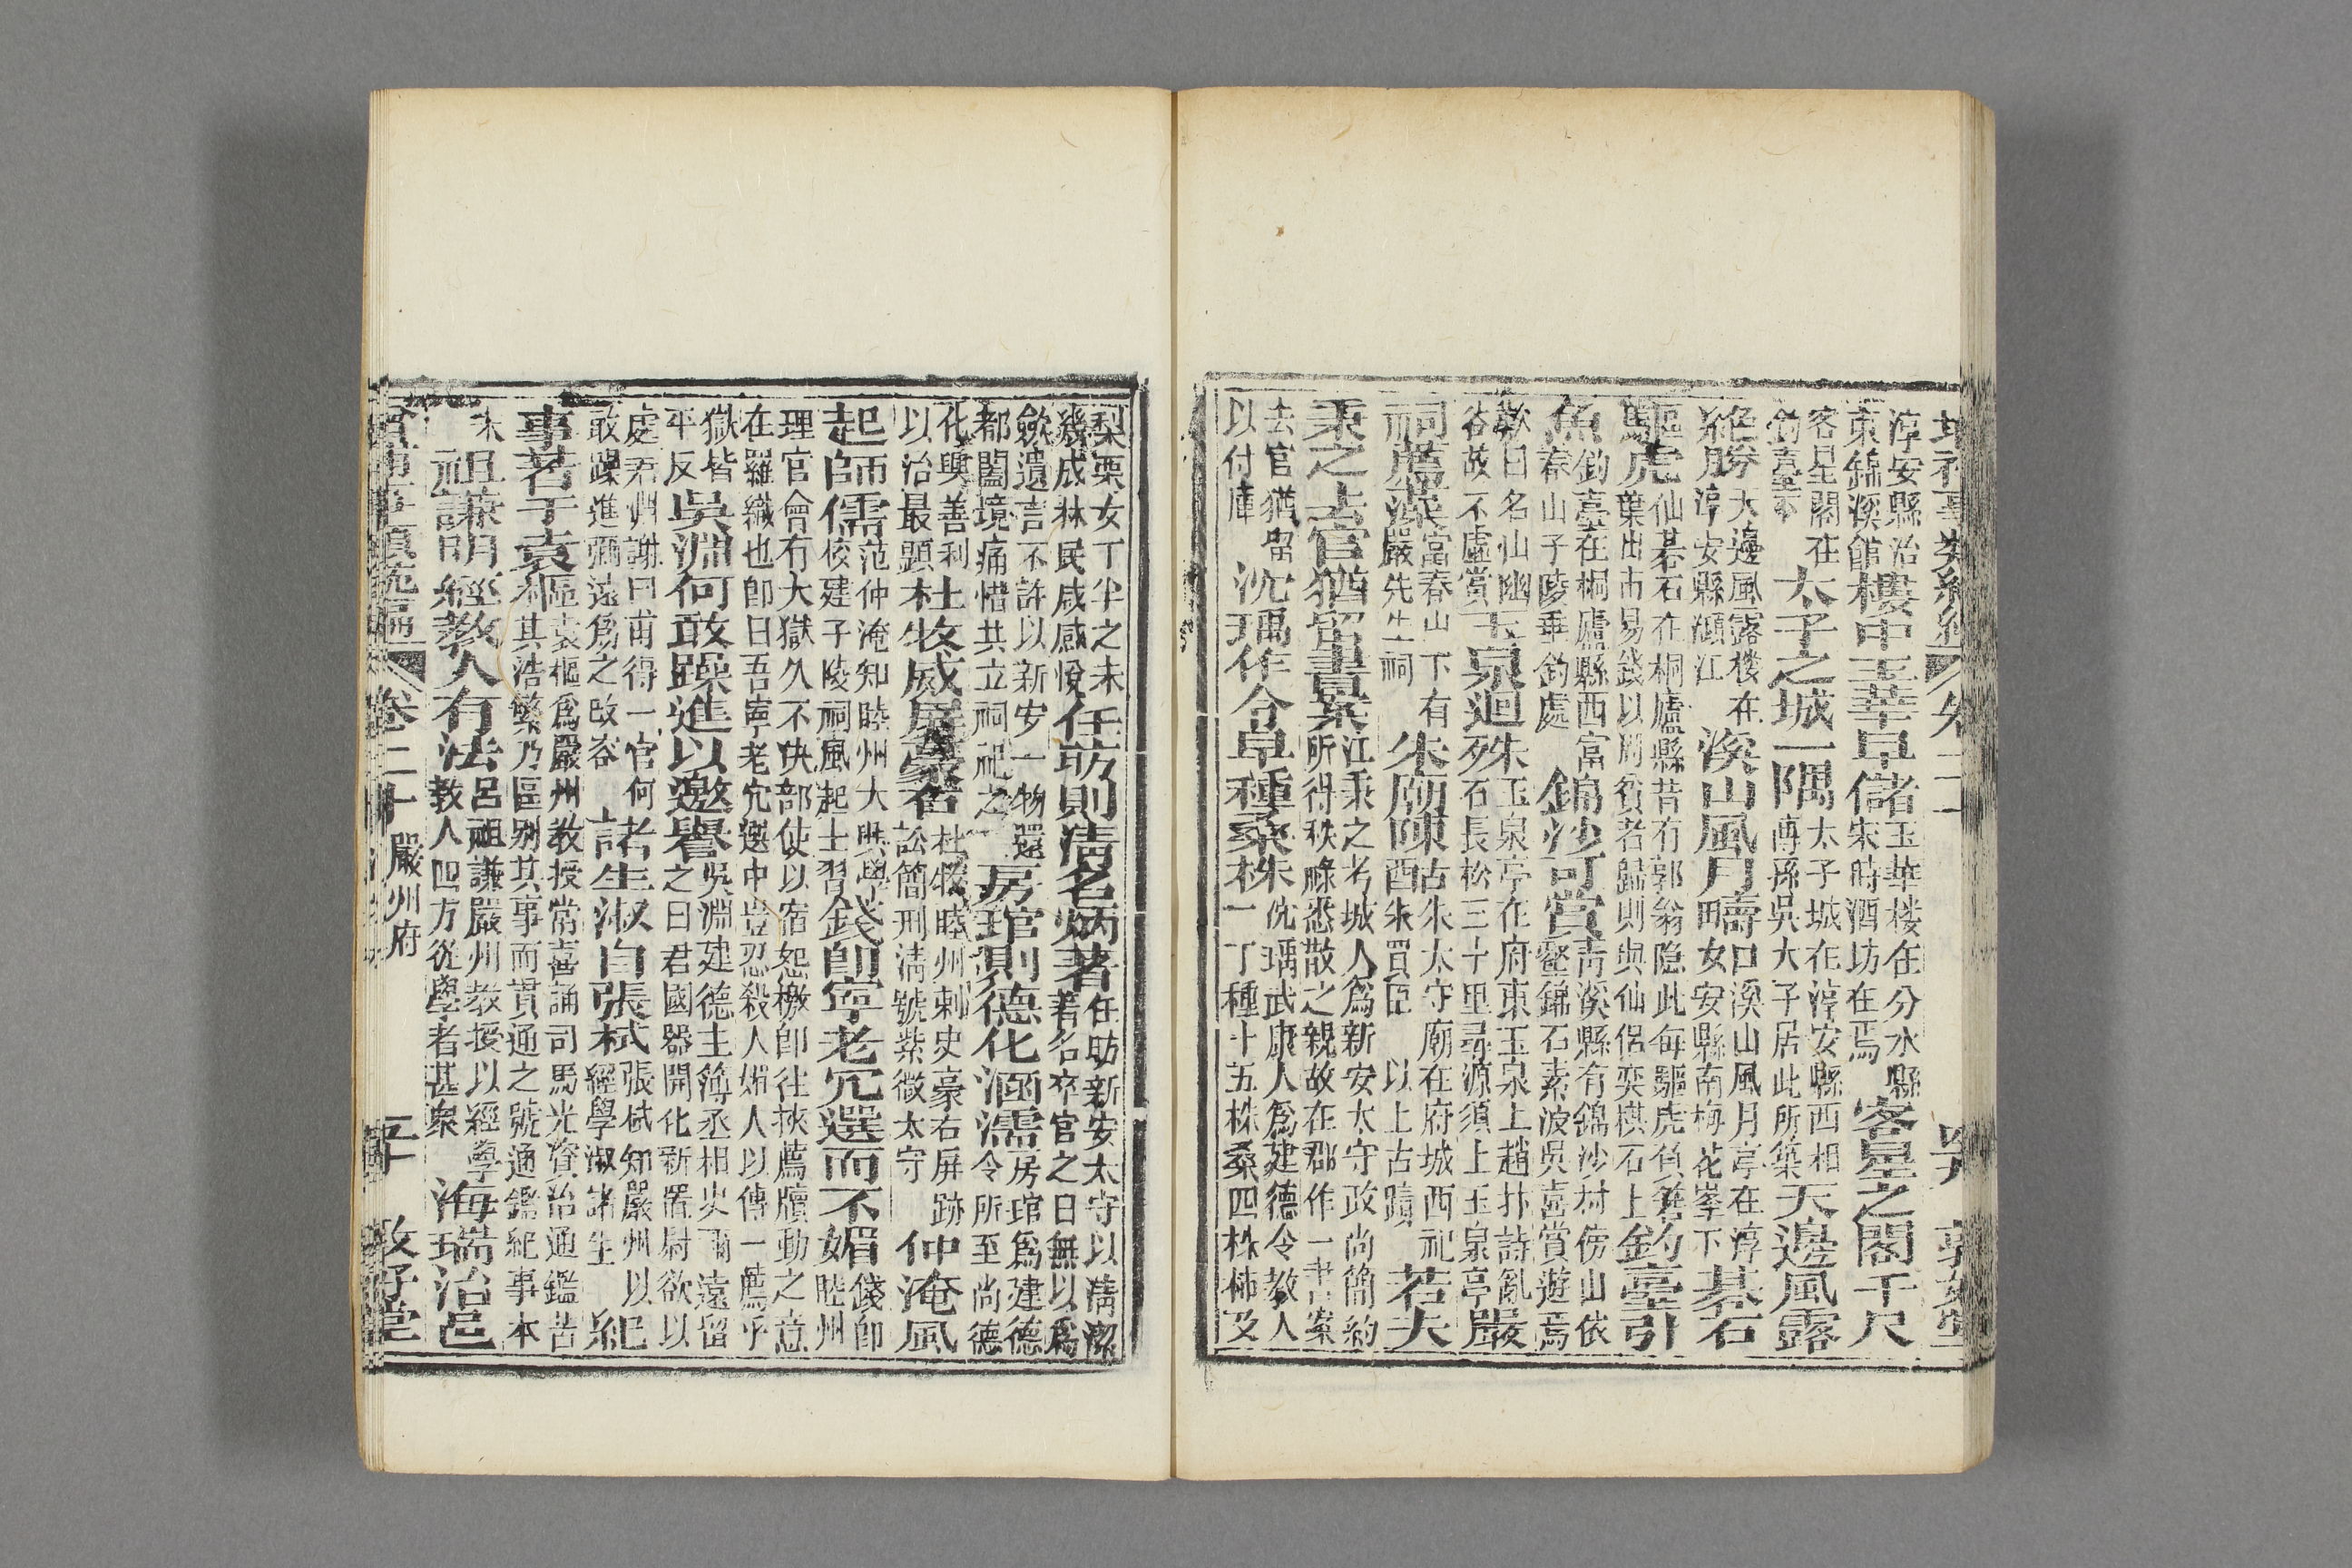 淳安縣治東錦溪館樓中玉華阜儲玉華楼在分水縣宋時酒坊在焉客星之閣千尺
客星閣在釣臺下太子之城一隅太子城在淳安縣西相傳孫吳大子居此所築天邊風露
絕勝天邊風露楼在淳安縣瀕江溪山風月疇溪山風月亭在淳安縣南梅花峯下碁石
驅虎仙碁石在桐廬縣昔有郭翁隐此每驅虎負箬葉出市易錢以周貧者歸則與仙侶奕棋石上釣臺引
魚釣臺在桐廬縣西富春山子陵垂釣處錦沙可賞靑溪縣有錦沙村傍山依壑錦石素波吳喜賞遊焉
歎曰名山幽谷故不虛賞玉泉迴殊玉泉亭在府東玉泉上趙抃詩亂石長松三十里尋源須上玉泉亭嚴
祠薦藻富春山下有嚴先生祠朱廟陳酉古朱太守廟在府城西祀朱買臣以上古蹟若夫
秉之去官猶留書案江秉之考城人爲新安太守政尚簡約所得秩祿悉散之親故在郡作一書案
去官猶留以付庫沈瑀作令阜種桑株沈瑀武康人爲建德令教人一丁種十五株桑四株柿及
梨栗女丁半之未幾成林民咸感悅任昉則淸名炳著任昉新安太守以淸潔著名卒官之日無以爲
歛遺言不許以新安一物還都闔境痛惜共立祠祀之房琯則德化涵濡房琯爲建德令所至尚德
化興善利以治最顯杜牧威屏豪右杜牧睦州刺史豪右屏跡訟簡刑淸號紫微太守仲淹風
起師儒范仲淹知睦州大興學校建子陵祠風起士習錢卽寧老冗選而不媚錢卽睦州
理官會有大獄久不決部使以宿怨檄卽往挾薦牘動之意在羅織也卽曰吾寧老冗選中豈忍殺人媚人以傳一薦乎
獄皆平反吳淵何敢躁進以邀譽吳淵建德主簿丞相史彌遠留之曰君國器開化新置尉欲以
處君淵謝曰甫得一官何敢躁進彌遠爲之改容諸生淑自張栻張栻知嚴州以經學淑諸生紀
事著于袁樞袁樞爲嚴州教授常喜誦司馬光資治通鑑苦其浩繁乃區別其事而貫通之號通鑑紀事本
末祖謙明經教人有法呂祖謙嚴州教授以經學教人四方從學者甚衆海瑞治邑
卷二十 嚴州府 敦好堂